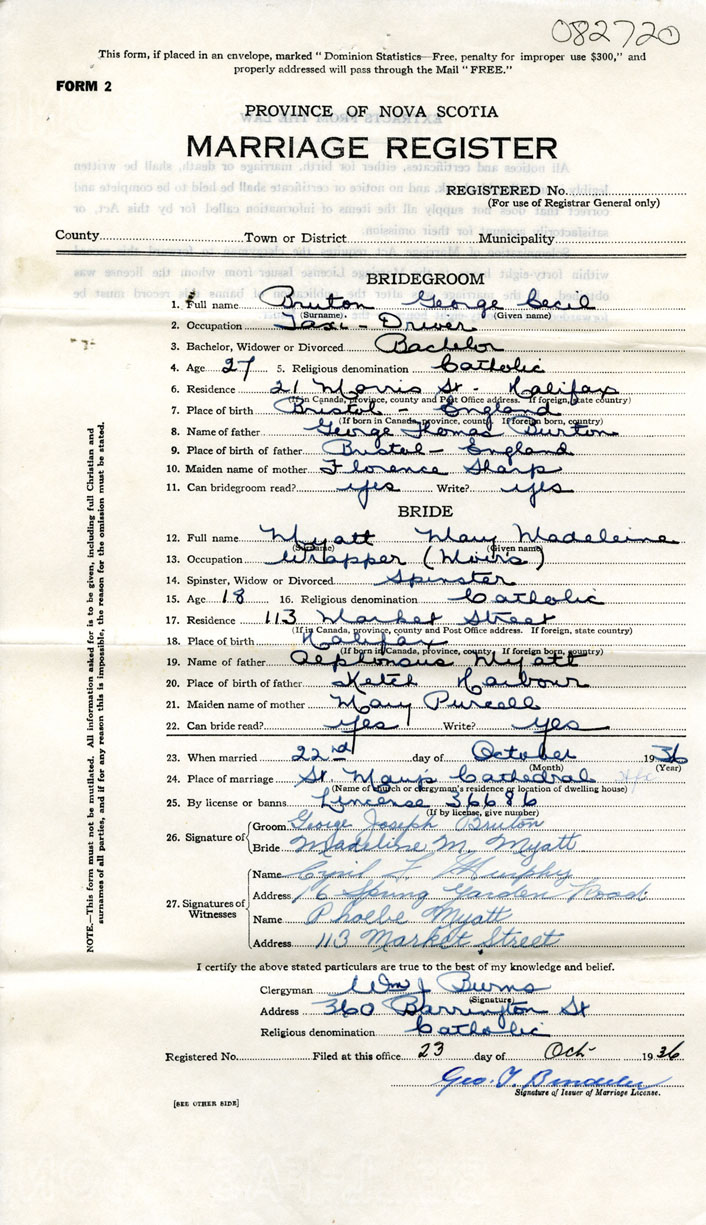 082720
This form, if placed in an envelope, marked " Dominion Statistics—Free, penalty for improper use $300," and
properly addressed will pass through the Mail " FREE."
FORM 2
PROVINCE OF NOVA SCOTIA
MARRIAGE REGISTER
REGISTERED No.
(For use of Registrar General only)
County Town or District Municipality
BRIDEGROOM
1. Full name Bruton George Cecil
(Surname) (Given name)
2. Occupation Taxi - Driver
3. Bachelor, Widower or Divorced Bachelor
4. Age 27 5. Religious denomination Catholic
6. Residence 21 Morris St - Halifax
(If in Canada, province, county and Post Office address. If foreign, state country)
7. Place of birth Bristol - England
(If born in Canada, province, county If foreign born, country)
8. Name of father George Thomas Burton
9. Place of birth of father Bristol - England
10. Maiden name of mother Florence Sharp
11. Can bridegroom read? yes Write? yes
BRIDE
12. Full name Myatt Mary Madeleine
(Surname) (Given name)
13. Occupation Wrapper (Moirs)
14. Spinster, Widow or Divorced Spinster
15. Age 18 16. Religious denomination Catholic
17. Residence 113 Market Street
(If in Canada, province, county and Post Office address. If foreign, state country)
18. Place of birth Halifax
(If born in Canada, province, county If foreign born, country)
19. Name of father Alphonsus Myatt
20. Place of birth of father Ketch Harbour
21. Maiden name of mother Mary Purcell
22. Can bride read? yes Write? yes
23. When married 22nd day of October 1936
(Month) (Year)
24. Place of marriage St Mary's Cathedral
(Name of church or clergyman's residence or location of dwelling house)
25. By license or banns Lincense 36686
(If by license, give number)
26. Signature of Groom George Joseph Bruton
Bride Madeline M. Myatt
27. Signatures of Witnesses Name Cyril L Murphy
Address 16 Spring Garden Road
Name Phoebe Myatt
Address 113 Market Street
I certify the above stated particulars are true to the best of my knowledge and belief.
Clergyman Wm J Burns
(Signature)
Address 360 Barrington St
Religious denomination Catholic
Registered No. Filed at this office 23 day of Oct. 1936
Geo. T.
Signature of Issuer of Marriage License.
[SEE OTHER SIDE]
NOTE.—This form must not be mutilated. All information asked for is to be given, including full Christian and
surnames of all parties, and if for any reason this is impossible, the reason for the omission must be stated.